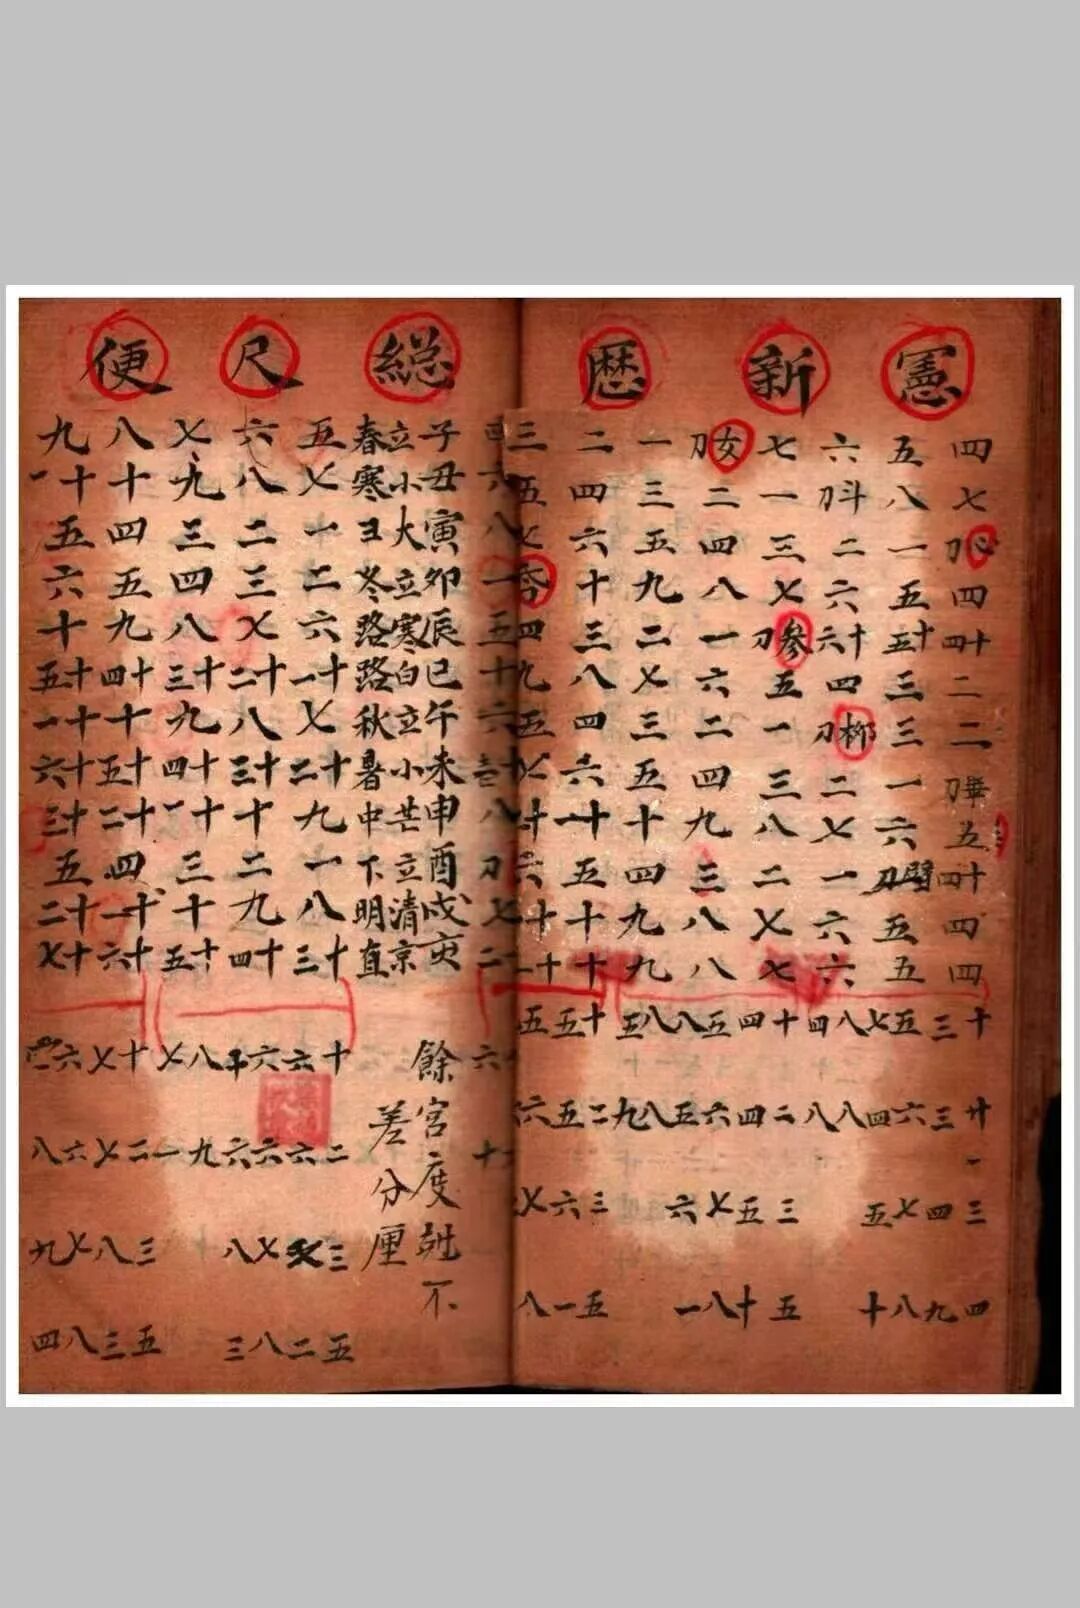 憲新歴総尺便
四七心刀四四十二二畢刀五四十四四
五八一五五十三三一六壁刀五五
六斗刀二六六十四柳刀二七一六六
七一三七參刀五一三八二七七
女刀二四八一六二四九三八八
一三五九二七三五十四九九
二四六十三八四六十一五十十
三五七四九五七十六十十一
六八一五十六八刀七
子丑寅卯辰巳午未申酉戌亥
立小大立寒白立小芒立清京
春寒日冬路路秋暑中下明直
五七一二六十一七十二九一八十三
六八二三七十二八十三十二九十四
七九三四八十三九十四十一三十十五
八十四五九十四十十五十二四十一十六
九十一五六十十五十一十六十三五十二十七
十廿一三四
三三四九
五六七八
七四五十
八八
四八
十二三五
四四五十
五六七八
八五六一
八八
五九
十二三五
五五六一
五六七八
餘宮度不
差分厘
十二三五
六六七二
六六七八
六八三
八九
七一
十二三五
七七八三
六六七八
八九四